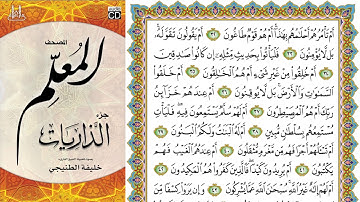 CD
المصحف
المعلم
جزء
الذاريات
خليفة الطنيجي
أَمْ تَأْمُرُهُمْ أَحْلَٰمُهُم بِهَٰذَآ أَمْ هُمْ قَوْمٌ طَاغُونَ ٣٢ أَمْ يَقُولُونَ تَقَوَّلَهُۥ
بَل لَّا يُؤْمِنُونَ ٣٣ فَلْيَأْتُوا۟ بِحَدِيثٍ مِّثْلِهِۦٓ إِن كَانُوا۟ صَٰدِقِينَ ٣٤
أَمْ خُلِقُوا۟ مِنْ غَيْرِ شَىْءٍ أَمْ هُمُ ٱلْخَٰلِقُونَ ٣٥ أَمْ خَلَقُوا۟
ٱلسَّمَٰوَٰتِ وَٱلْأَرْضَ بَل لَّا يُوقِنُونَ ٣٦ أَمْ عِندَهُمْ خَزَآئِنُ
رَبِّكَ أَمْ هُمُ ٱلْمُصَۜيْطِرُونَ ٣٧ أَمْ لَهُمْ سُلَّمٌ يَسْتَمِعُونَ فِيهِ فَلْيَأْتِ
مُسْتَمِعُهُم بِسُلْطَٰنٍ مُّبِينٍ ٣٨ أَمْ لَهُ ٱلْبَنَٰتُ وَلَكُمُ ٱلْبَنُونَ ٣٩
أَمْ تَسْـَٔلُهُمْ أَجْرًا فَهُم مِّن مَّغْرَمٍ مُّثْقَلُونَ ٤٠ أَمْ عِندَهُمُ ٱلْغَيْبُ فَهُمْ
يَكْتُبُونَ ٤١ أَمْ يُرِيدُونَ كَيْدًا فَٱلَّذِينَ كَفَرُوا۟ هُمُ ٱلْمَكِيدُونَ ٤٢
أَمْ لَهُمْ إِلَٰهٌ غَيْرُ ٱللَّهِ سُبْحَٰنَ ٱللَّهِ عَمَّا يُشْرِكُونَ ٤٣ وَإِن يَرَوْا۟ كِسْفًا مِّنَ